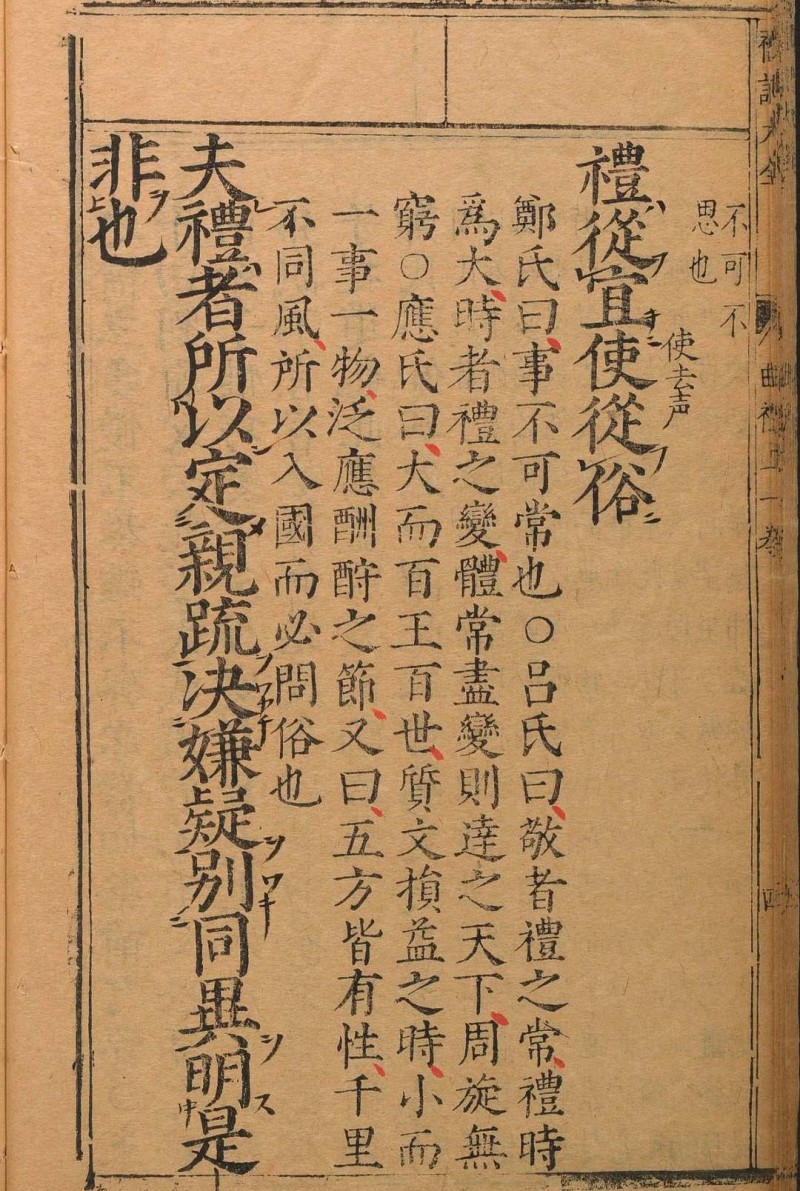 禮記大全
曲禮上一卷
四
不可不
思也
使去声
禮從宜使從俗
鄭氏曰事不可常也○呂氏曰敬者禮之常禮時
爲大時者禮之變體常盡變則達之天下周旋無
窮○應氏曰大而百王百世質文損益之時小而
一事一物泛應酬酢之節又曰五方皆有性千里
不同風所以入國而必問俗也
夫禮者所以定親疏決嫌疑別同異明是
非也